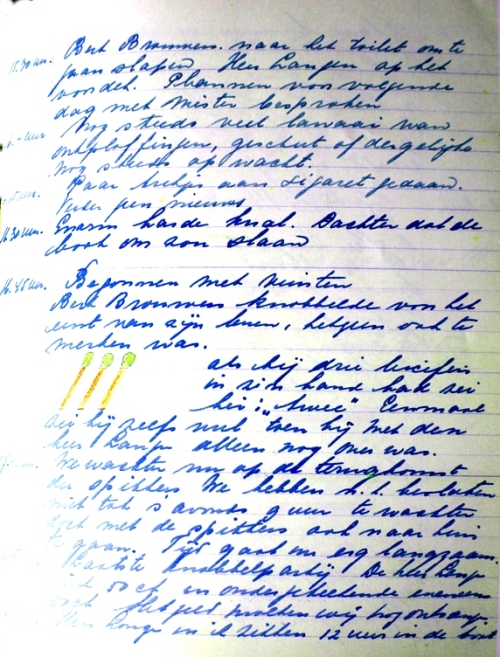 15.30 uur. Bert Brouwers. naar het toilet om te
gaan slapen Heer Langen op het
voordek. Plannen voor volgende
dag met Mister besproken
Nog steeds veel lawaai van
ontploffingen, geschut of dergelijke
nog steeds op wacht.
Paar trekjes aan sigaret gedaan.
Verder geen nieuws
16.30 uur. Enorm harde knal. Dachten dat de
boot om zou slaan
16.45 uur. Begonnen met
Bert Brouwers knobbelde voor het
eerst van zijn leven, hetgeen ook te
merken was.
als hij drie lucifers
in zijn hand had zei
hij: „twee" Eenmaal
zei hij zelfs nul toen hij met den
heer Lange alleen nog over was.
We wachten nu op de terugkomst
der spitters We hebben n.l. besloten
niet tot s avonds 9 uur te wachten
doch met de spitters ook naar huis
te gaan. Tijd gaat nu erg langzaam.
Laatste knobbelpartij. De heer Lange
en ondergeteekende eveneens
Het geld mochten wij nog
Heer Lange en ik zitten 12 uur in de boot